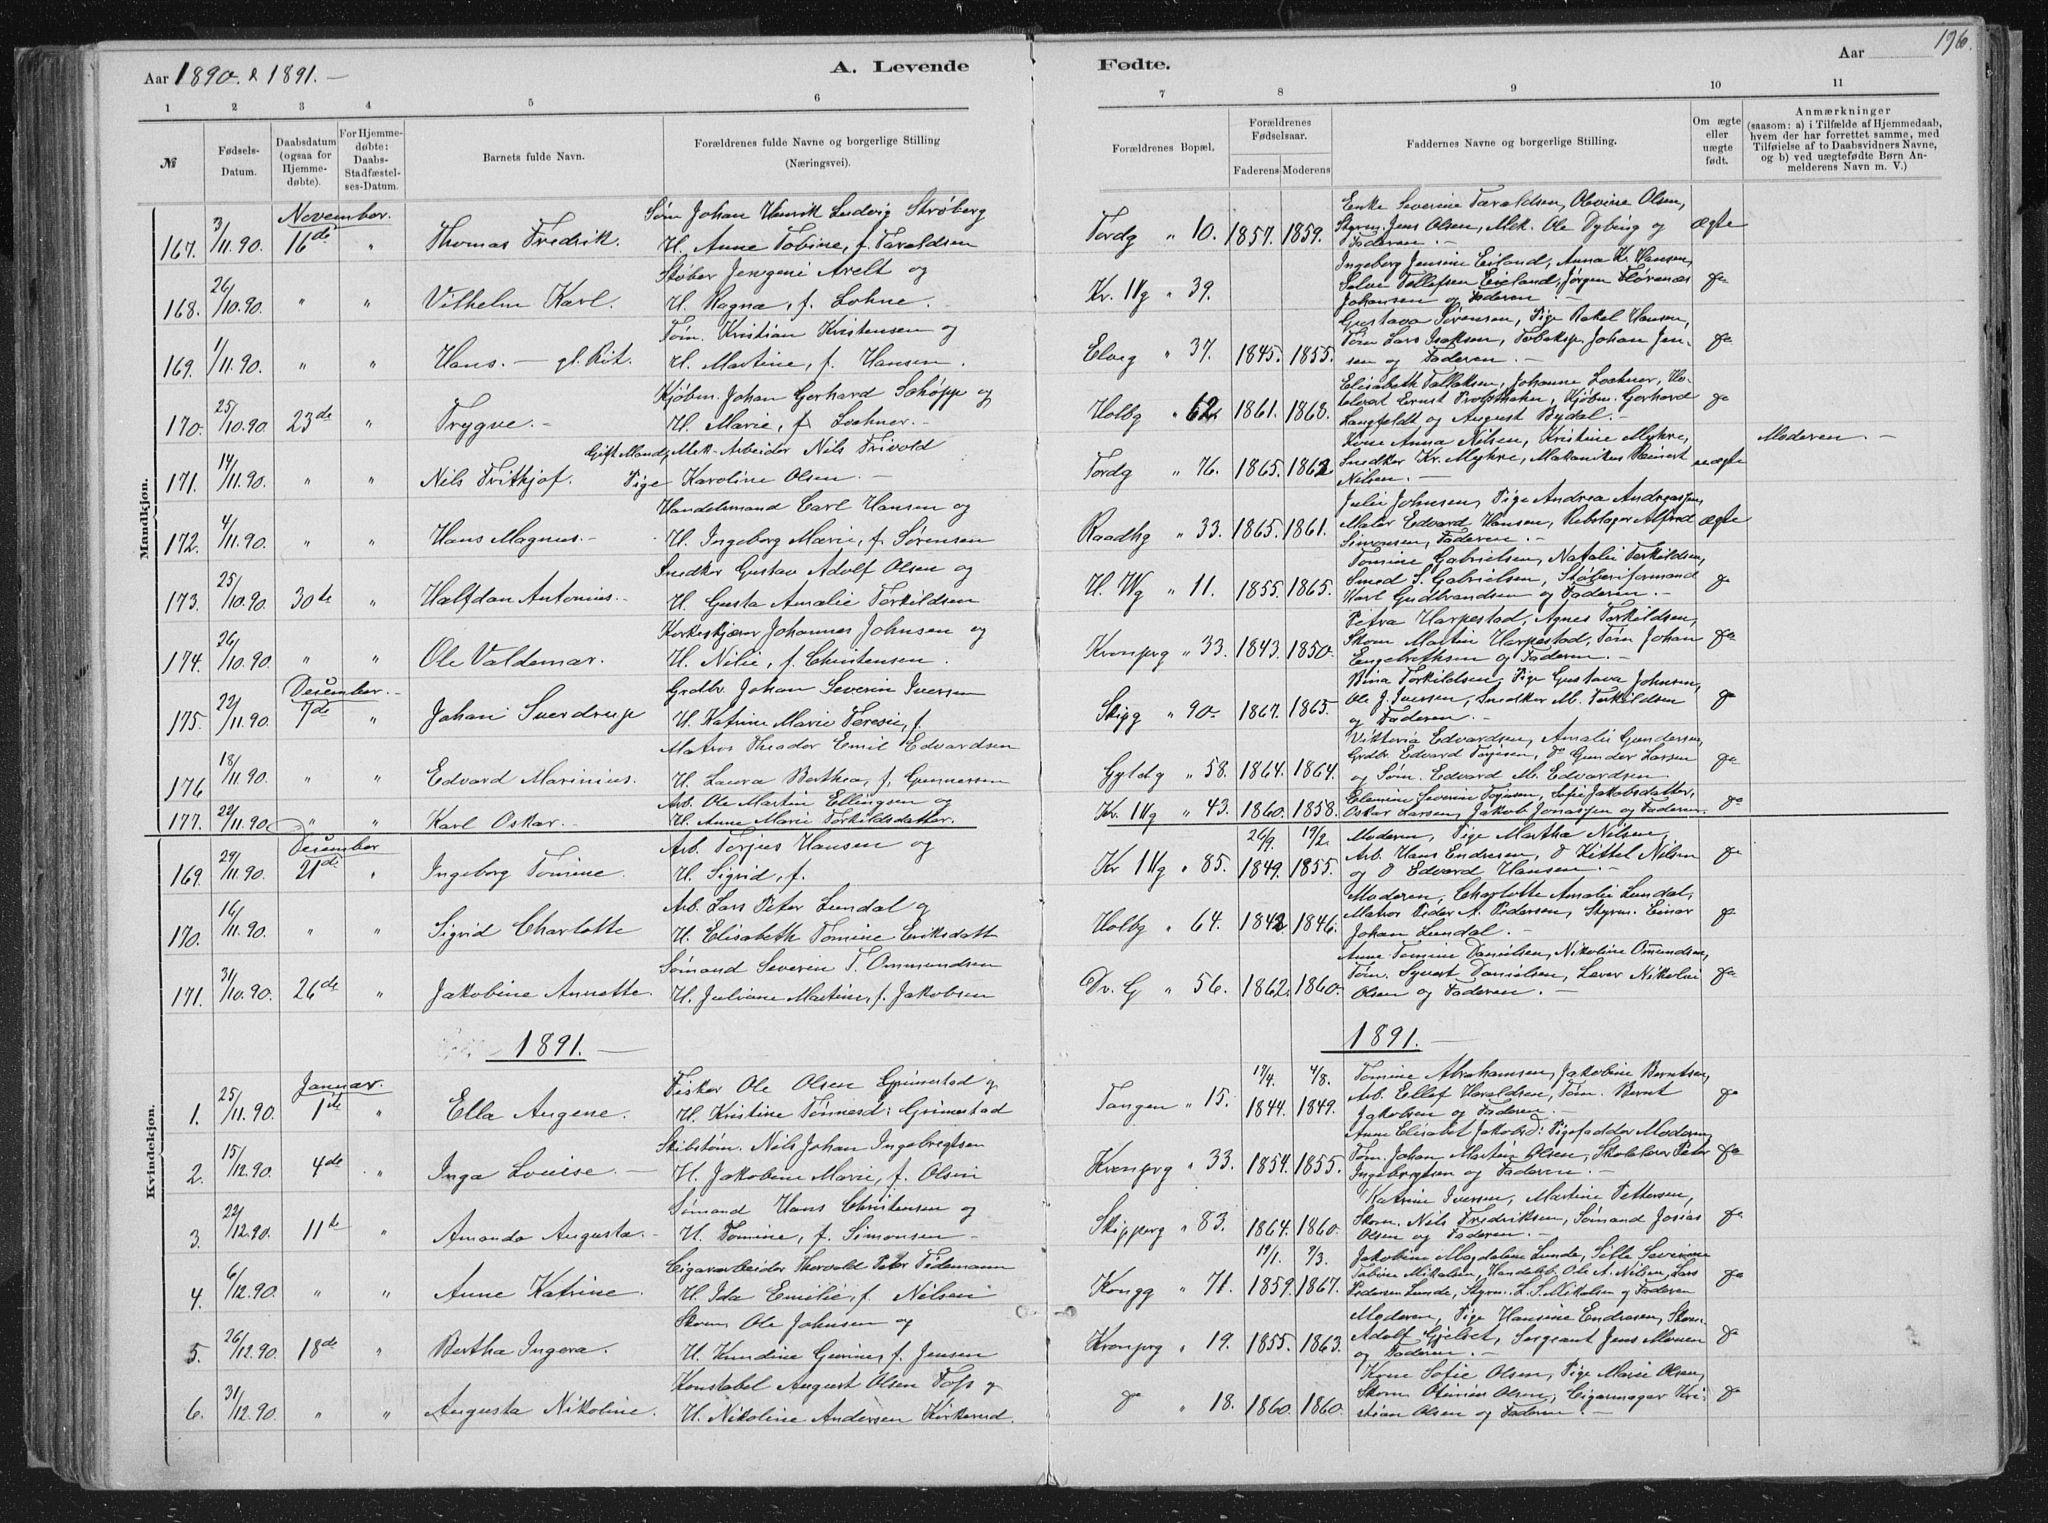 Aar 1890 & 1891. —
A. Levende
Fødte.
Aar 196.
1 2 3 4 5 6 7 8 9 10 11
№
Fødsels-Datum.
Daabsdatum (ogsaa for Hjemmedøbte).
For Hjemmedøbte: Daabs-Stadfæstelses-Datum.
Barnets fulde Navn.
Forældrenes fulde Navne og borgerlige Stilling (Næringsvei).
Forældrenes Bopæl.
Forældrenes Fødselsaar.
Faderens Moderens
Faddernes Navne og borgerlige Stilling.
Om ægte eller uægte født.
Anmærkninger
(saasom: a) i Tilfælde af Hjemmedaab,
hvem der har forrettet samme, med
Tilføielse af to Daabsvidners Navne,
og b) ved uægtefødte Børn An-
melderens Navn m. V.)
Mandkjøn.
November.
167. 3/11.90. 16de " Thomas Fredrik.
Søm Johan Henrik Ludvig Strøberg
H. Anne Tobine, f. Taraldsen
Tordg " 10. 1857. 1859.
Enke Severine Taraldsen, Olevine Olsen,
Styrm. Jens Olsen, Mek. Ole Dybing og
Faderen. —
ægte
168. 26/10.90. " " Vilhelm Karl.
Støber Jensgeni Arelt og
H. Ragna, f. Lohne.
Kr. IVg " 39.
Ingeborg Jensine Eiland, Anna K. Hansen,
Salve Tellefsen Eieland, Jørgen Florenæs
Johansen og Faderen. —
do
169. 1/11.90. " " Hans. — gl. Rit.
Tøm. Kristian Kristensen og
H. Martine, f. Hansen.
Elveg " 37. 1845. 1855.
Gustava Sørensen, Pige Rakel Hansen,
Tøm Lars Isaksen, Tobaksp. Johan Jen-
sen og Faderen. —
do
170. 25/10.90 23de " Trygve. —
Kjøbm. Johan Gerhard Schøpp og
H. Marie, f. Lochner. —
Holbg " 62. 1861. 1868.
Elisabeth Fallaksen, Johanne Lochner,
Ernst Gerhard
Langfeldt og August Bydal. —
do
171. 14/11.90. " " Nils Fritkjof.
Gift Mand, Mek. Arbeider Nils Frivold
Pige Karoline Olsen. —
Tordg " 76. 1865. 1862
Kone Anna Nilsen, Kristine Myhre,
Snedker Kr. Myhre, Mekanikus Reinert
Nilsen. —
uægte
Moderen. —
172. 4/11.90. " " Hans Magnus. —
Handelsmand Carl Hansen og
H. Ingeborg Marie, f. Sørensen
Raadhg " 33. 1865. 1861.
Julie Johnsen, Pige Andrea Andreassen,
Maler Edvard Hansen, Rebslager Alfred
Simonsen, Faderen. —
ægte
173. 25/10.90. 30te " Halfdan Antonius. —
Snedker Gustav Adolf Olsen og
H. Gusta Amalie Torkildsen
H. Wg " 11. 1855. 1865.
Tomine Gabrielsen, Natalie Torkildsen,
Smed S. Gabrielsen, Støberiformand
Karl Gudbrandsen og Faderen. —
do
174. 26/10.90. " " Ole Valdemar.
Korkeskjærer Johannes Johnsen og
H. Nilie, f. Christensen.
Kronprg " 33. 1843. 1850.
Petra Harpestad, Agnes Torkildsen,
Skom. Martin Harpestad, Tøm Johan
Engebrethsen og Faderen. —
do
Desember. —
175. 22/11.90. 7de " Johan Sverdrup
Grdbr. Johan Severin Iversen
H. Katrine Marie Teresie, f.
Skipg " 90. 1867. 1865.
Bina Torkildsen, Pige Gustava Johnsen,
Ole J. Iversen, Snedker M. Torkildsen
og Faderen. —
do
176 18/11.90. " " Edvard Marinius.
Matros Theodor Emil Edvardsen
H. Laura Berthea, f. Gunnersen
Gyldg " 58. 1864. 1864.
Viktoria Edvardsen, Amalie Gundersen,
Grdbr. Edvard Torjusen, do Gunder Larsen
og Søm. Edvard M. Edvardsen.
do
177. 22/11.90 " " Karl Oskar. —
Arb. Ole Martin Ellingsen og
H. Anne Marie Torkildsdatter.
Kr. IVg " 43. 1860. 1858.
Elemine Severine Torjusen, Sofie Jakobsdatter,
Oskar Larsen, Jakob Jonassen og Faderen.
do
Kvindekjøn.
Desember
169. 29/11.90. 21de " Ingeborg Tomine.
Arb. Torjus Hansen og
H. Sigrid, f.
Kr IVg " 85. 26/9. 1849. 19/2. 1855.
Moderen, Pige Martha Nilsen,
Arb. Hans Endresen, do Kittel Nilsen
og do Edvard Hansen. —
do
170. 16/11.90. " " Sigrid Charlotte
Arb. Lars Peter Lundal og
H. Elisabeth Tomine Eriksdatt
Holbg " 64. 1842 1846.
Moderen, Charlotte Amalie Lundal,
Matros Peder A. Pedersen, Styrm. Einar
Johan Lundal. —
do
171. 31/10.90. 26de " Jakobine Annette.
Sømand Severin T. Ommundsen
H. Juliane Martine, f. Jakobsen
Dr. G " 56. 1862. 1860.
Anne Tomine Danielsen, Nikoline Omundsen,
Tøm. Syvert Danielsen, Læver Nikolai
Olsen og Faderen. —
do
1891. —
1891. —
Januar.
1. 25/11.90. 1ste " Ella Augene.
Fisker Ole Olsen Grimestad og
H. Kristine Tønnesd: Grimestad
Tangen " 15. 17/4. 1844. 4/8. 1849.
Tomine Abrahamsen, Jakobine Berntsen,
Arb. Ellef Haraldsen, Tøm. Bernt
Jakobsen og Faderen. —
do
2. 15/12.90. 4de " Inga Lovise. —
Skibstøm. Nils Johan Ingebregtsen
H. Jakobine Marie, f. Olsen
Kronprg " 33. 1854. 1855.
Anne Elisabet Jakobsd: Pigefadder Moderen,
Tøm. Johan Martin Olsen, Skolelærer Peter
Ingebregtsen og Faderen. —
do
3. 22/12.90. 11te " Amanda Augusta. —
Sømand Hans Christensen og
H. Tomine, f. Simonsen —
Skipperg " 83. 1864. 1860.
Katrine Iversen, Martine Pettersen,
Skom. Nils Fredriksen, Sømand Josias
Olsen og Faderen. —
do
4. 6/12.90. " " Anne Katrine.
Cigararbeider Thorvald Peter Tidemann
H. Ida Emilie, f. Nilsen
Kongg " 71. 19/1. 1859. 9/3. 1867.
Jakobine Magdalene Lunde, Sille Severine
Tobine Mikalsen, Handelsb. Ole A. Nilsen, Lars
Pedersen Lunde, Styrm. L. S. Mikalsen og Faderen
do
5. 26/12.90. 18de " Bertha Ingera.
Skom. Ole Johnsen og
H. Kundine Gurine, f. Jensen
Kronprg " 19. 1855. 1863.
Moderen, Pige Hansine Endresen, Skom.
Adolf Gjelset, Sergeant Jens Monsen
og Faderen. —
do
6. 31/12.90. " " Augusta Nikoline.
Konstabel August Olsen Foss og
H. Nikoline Andersen Kirkerud.
do " 18. 1860. 1860.
Kone Sofie Olsen, Pige Marie Olsen,
Skom Olsen, Cigarmager Kri-
stian Olsen og Faderen. —
do